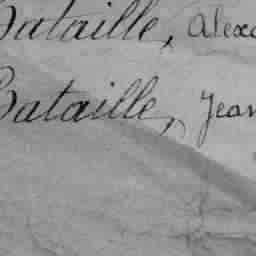 Bataille, Alexa
Bataille, Jean